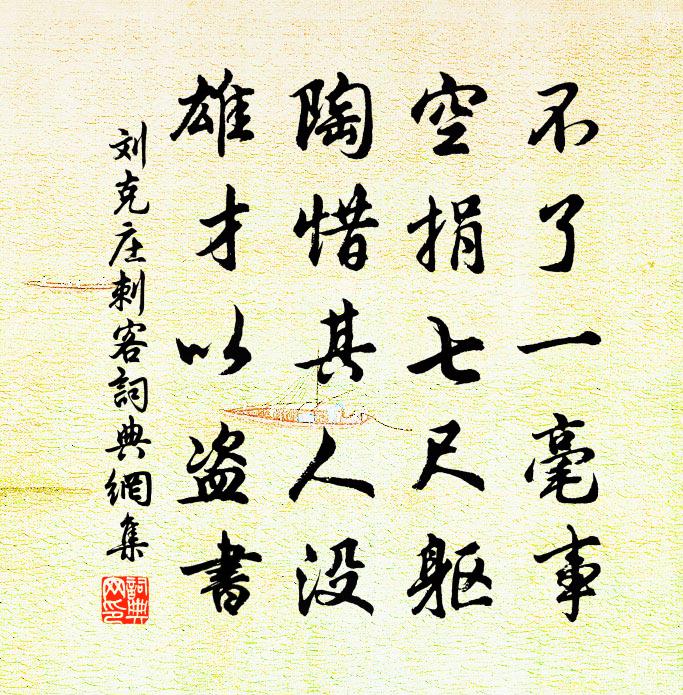 不了一毫事
空捐七尺躯
陶惜其人没
雄才以盗書
刘克庄刺客詞典網集
詞典网印